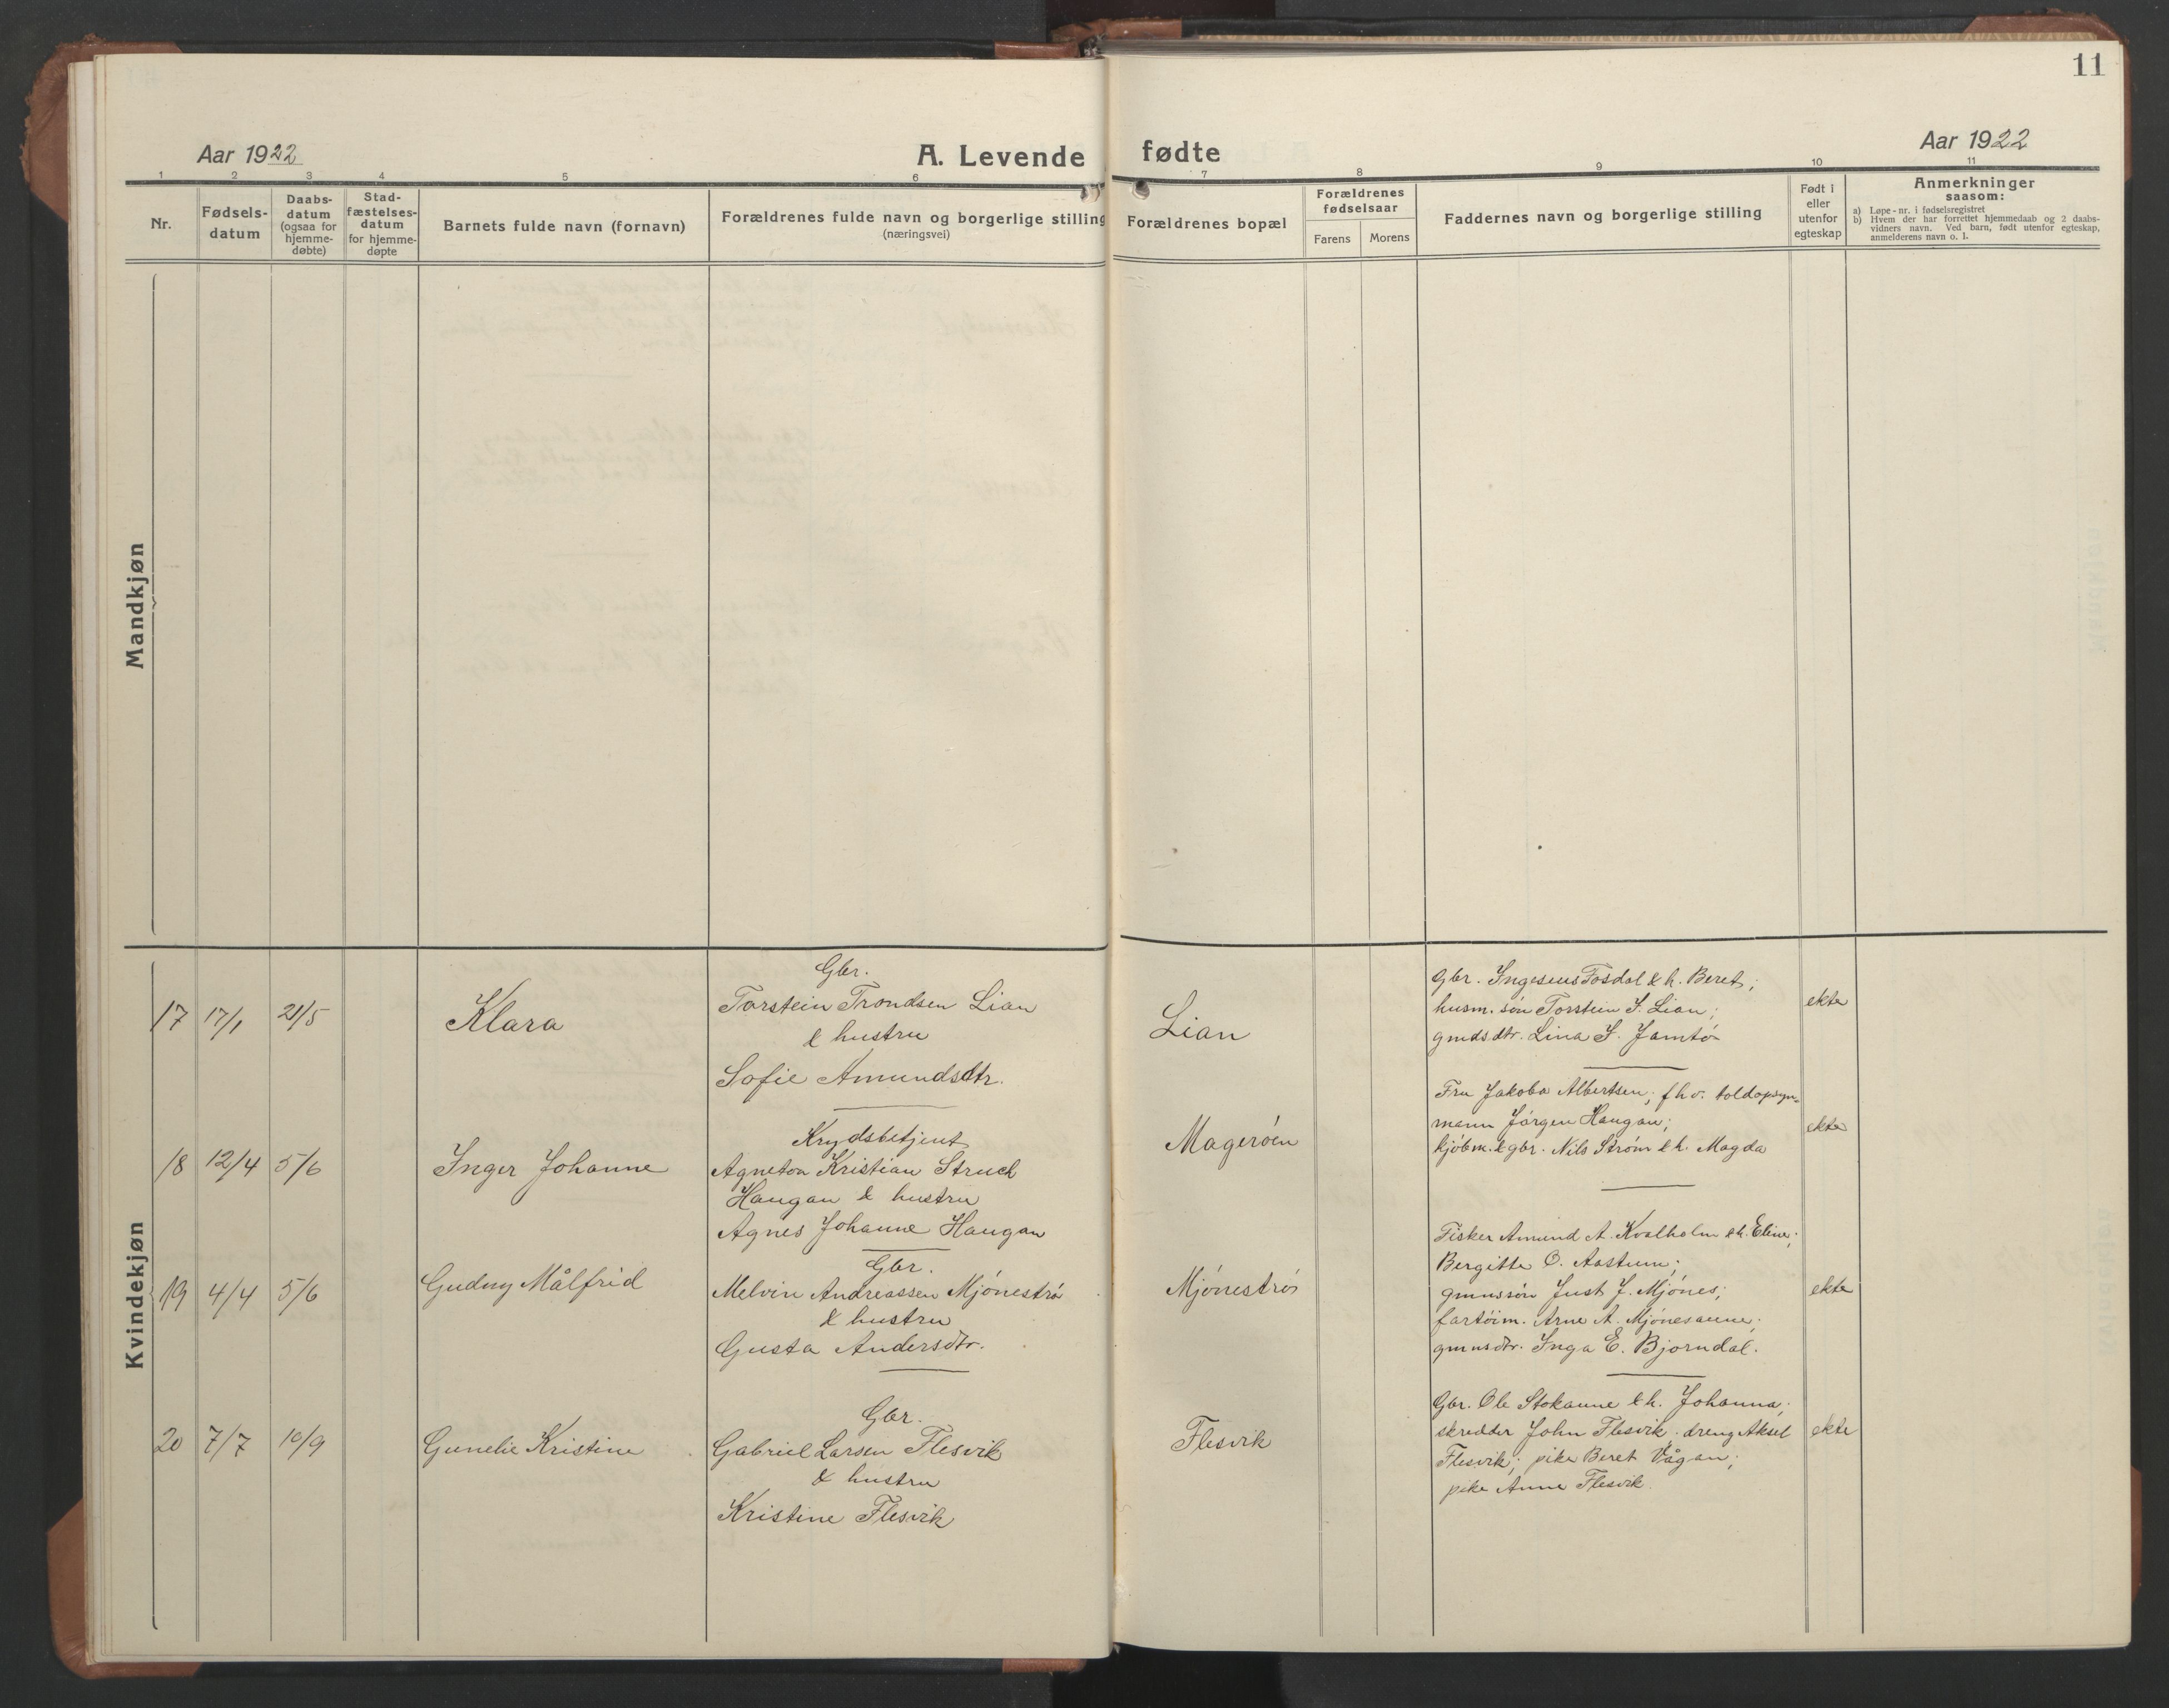 11
Aar 1922
A. Levende fødte
Aar 1922
1 2 3 4 5 6 7 8 9 10 11
Nr.
Fødsels-
datum
Daabs-
datum
(ogsaa for
hjemme-
døbte)
Stad-
fæstelses-
datum
for hjemme-
døpte
Barnets fulde navn (fornavn)
Forældrenes fulde navn og borgerlige stilling
(næringsvei)
Forældrenes bopæl
Forældrenes
fødselsaar
Farens Morens
Faddernes navn og borgerlige stilling
Født i
eller
utenfor
egteskap
Anmerkninger
saasom:
a) Løpe-nr. i fødselsregistret
b) Hvem der har forrettet hjemmedaab og 2 daabs-
vidners navn. Ved barn, født utenfor egteskap,
anmelderens navn o. l.
Mandkjøn
Kvindekjøn
17 17/1 21/5 Klara
Gbr.
Torstein Trondsen Lian
& hustru
Sofie Amundsdtr.
Lian
Gbr. Ingesius Fosdal & h. Beret;
husm. søn Torstein I. Lian;
gmds.dtr. Lina I. Jamtø
ekte
18 12/4 5/6 Inger Johanne
Krydsbetjent
Agneton Kristian Struck
Haugan & hustru
Agnes Johanne Haugan
Magerøen
Fru Jakoba Albertsen; fhv. toldopsyn-
mann Jørgen Haugan;
kjøbm. & gbr. Nils Strøm & h. Magda
ekte
19 4/4 5/6 Gudny Målfrid
Gbr.
Melvin Andreassen Mjønestrø
& hustru
Gusta Andersdtr.
Mjønestrø
Fisker Amund A. Kvalholm & h. Eline;
Bergitte O. Aastum;
gmnssøn Just J. Mjønes;
fartøim. Arne A. Mjønesaune;
gmnsdtr. Inga E. Bjørndal.
ekte
20 7/7 10/9 Gunelie Kristine
Gbr.
Gabriel Larsen Flesvik
& hustru
Kristine Flesvik
Flesvik
Gbr. Ole Stokaune & h. Johanna;
skredder John Flesvik; dreng Aksel
Flesvik; pike Beret Vågan;
pike Anne Flesvik.
ekte